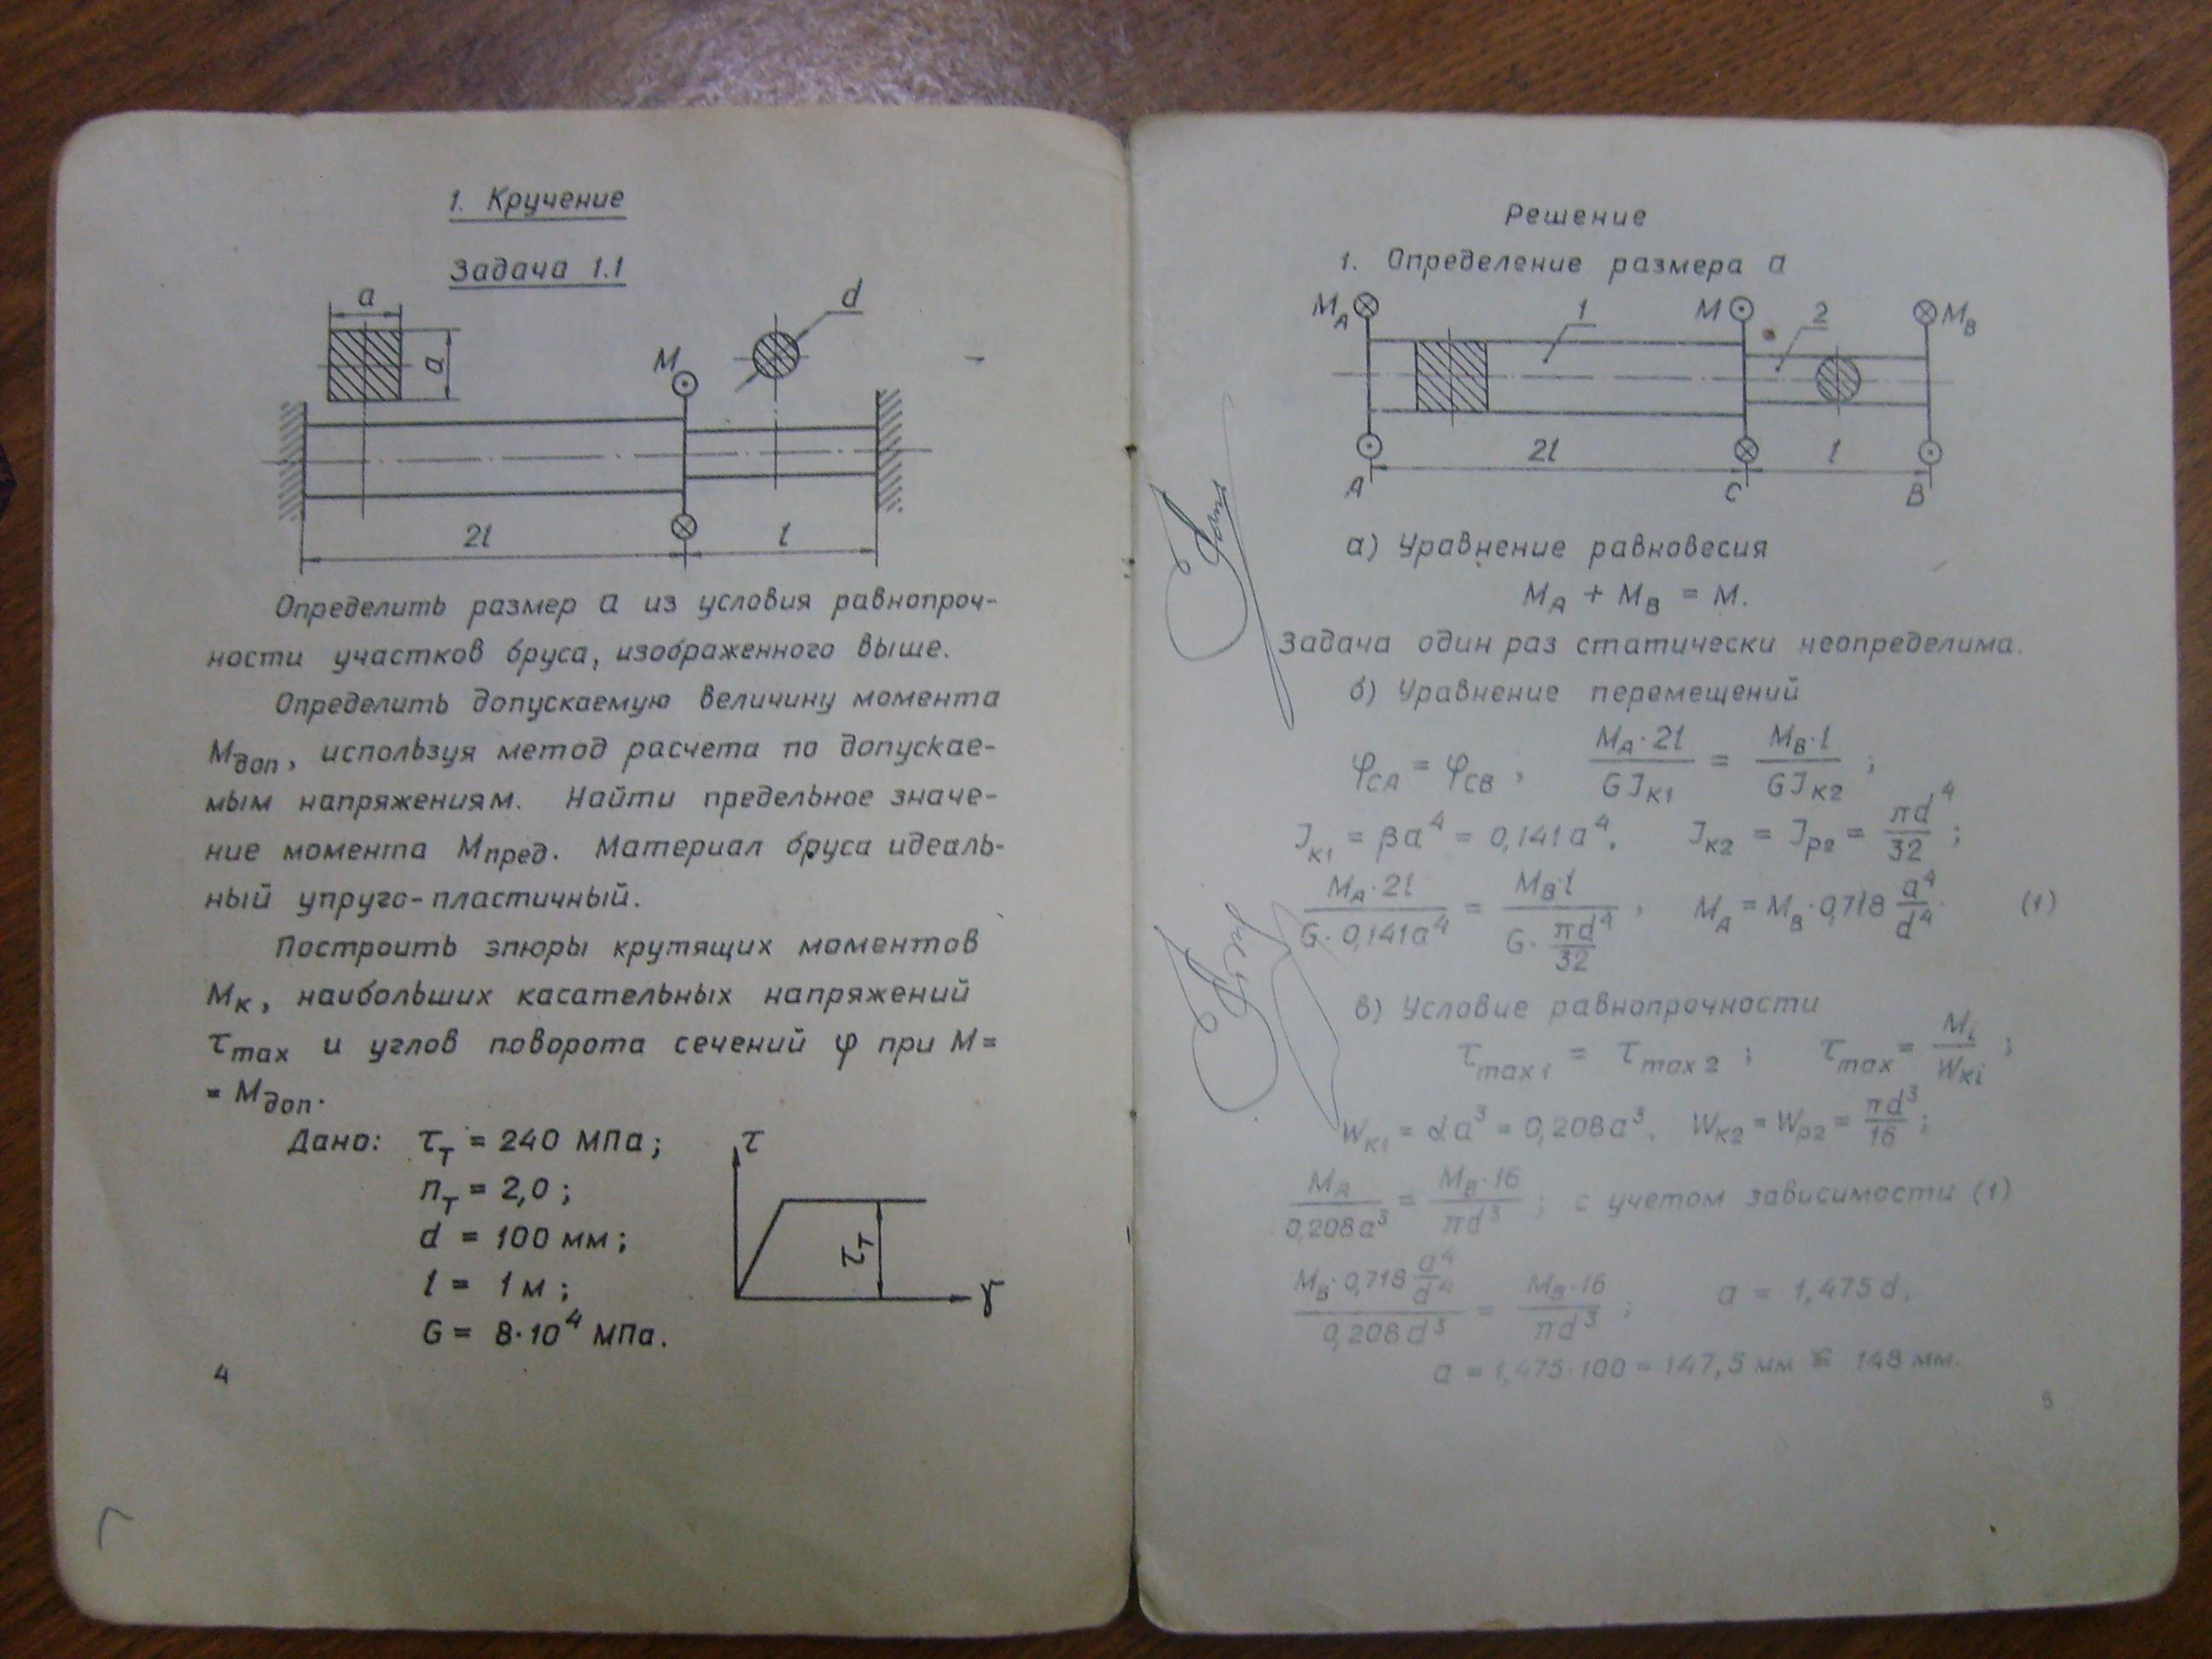 1. Кручение
Задача 1.1
a
d
a
M
2l
l
Определить размер a из условия равнопроч-
ности участков бруса, изображенного выше.
Определить допускаемую величину момента
Mдоп, используя метод расчета по допускае-
мым напряжениям. Найти предельное значе-
ние момента Mпред. Материал бруса идеаль-
ный упруго-пластичный.
Построить эпюры крутящих моментов
Mк, наибольших касательных напряжений
τmax и углов поворота сечений φ при M=
= Mдоп.
Дано: τт = 240 МПа;
nт = 2,0;
d = 100 мм;
l = 1м;
G = 8·10⁴ МПа.
τ
τт
γ
4
Решение
1. Определение размера a
MA
1
M
2
MB
2l
l
A
C
B
а) Уравнение равновесия
MA + MB = M.
Задача один раз статически неопределима.
б) Уравнение перемещений
φCA = φCB, MA·2l / GJк1 = MB·l / GJк2;
Jк1 = βa⁴ = 0,141a⁴, Jк2 = Jp2 = πd⁴/32;
MA·2l / G·0,141a⁴ = MB·l / G·πd⁴/32, MA = MB·0,718 a⁴/d⁴. (1)
в) Условие равнопрочности
τmax1 = τmax2; τmax = Mi/Wкi;
Wк1 = αa³ = 0,208a³, Wк2 = Wp2 = πd³/16;
MA / 0,208a³ = MB·16 / πd³; с учетом зависимости (1)
MB·0,718 a⁴/d⁴ / 0,208d³ = MB·16 / πd³; a = 1,475d,
a = 1,475·100 = 147,5 мм ≅ 148 мм.
5